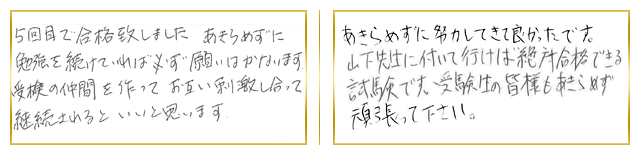 5回目で合格致しました あきらめずに
勉強を続けていれば必ず願いはかないます
受検の仲間を作って お互い刺激し合って
継続されると いいと思います.
あきらめずに努力してきて良かったです。
山下先生に付いて行けば絶対合格できる
試験です。受験生の皆様もあきらめず
頑張って下さい。